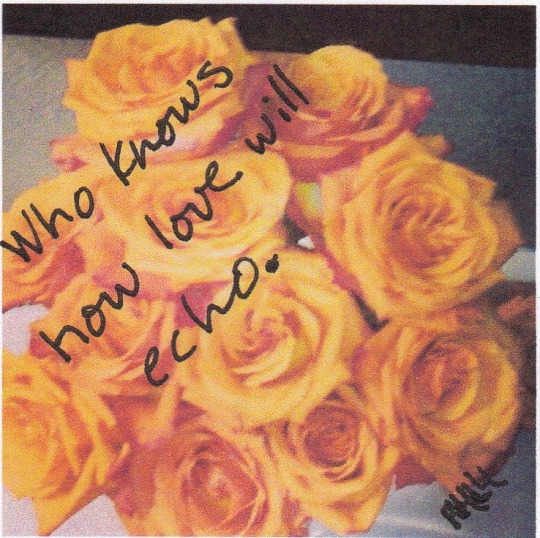 Who knows
how love will
echo.